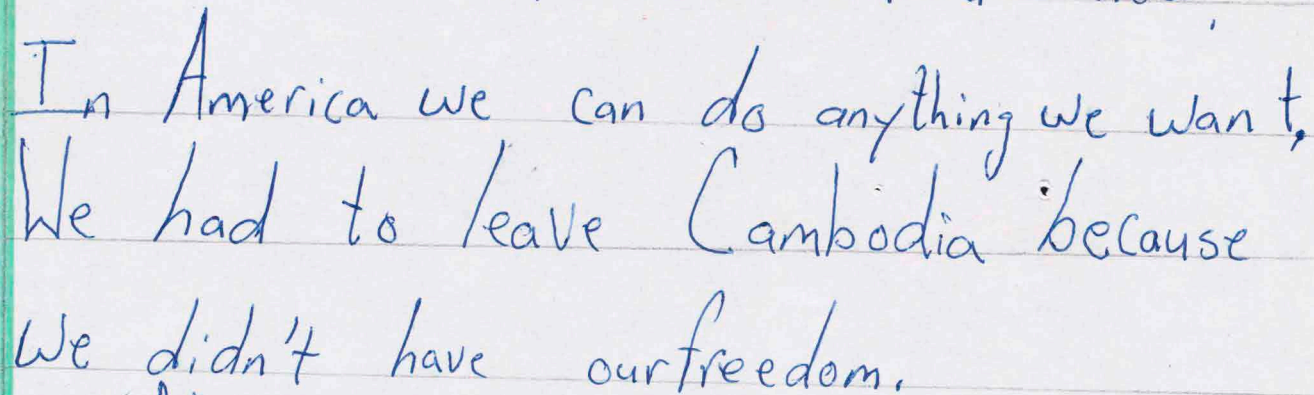 In America we can do anything we want,
We had to leave Cambodia because
we didn't have our freedom.